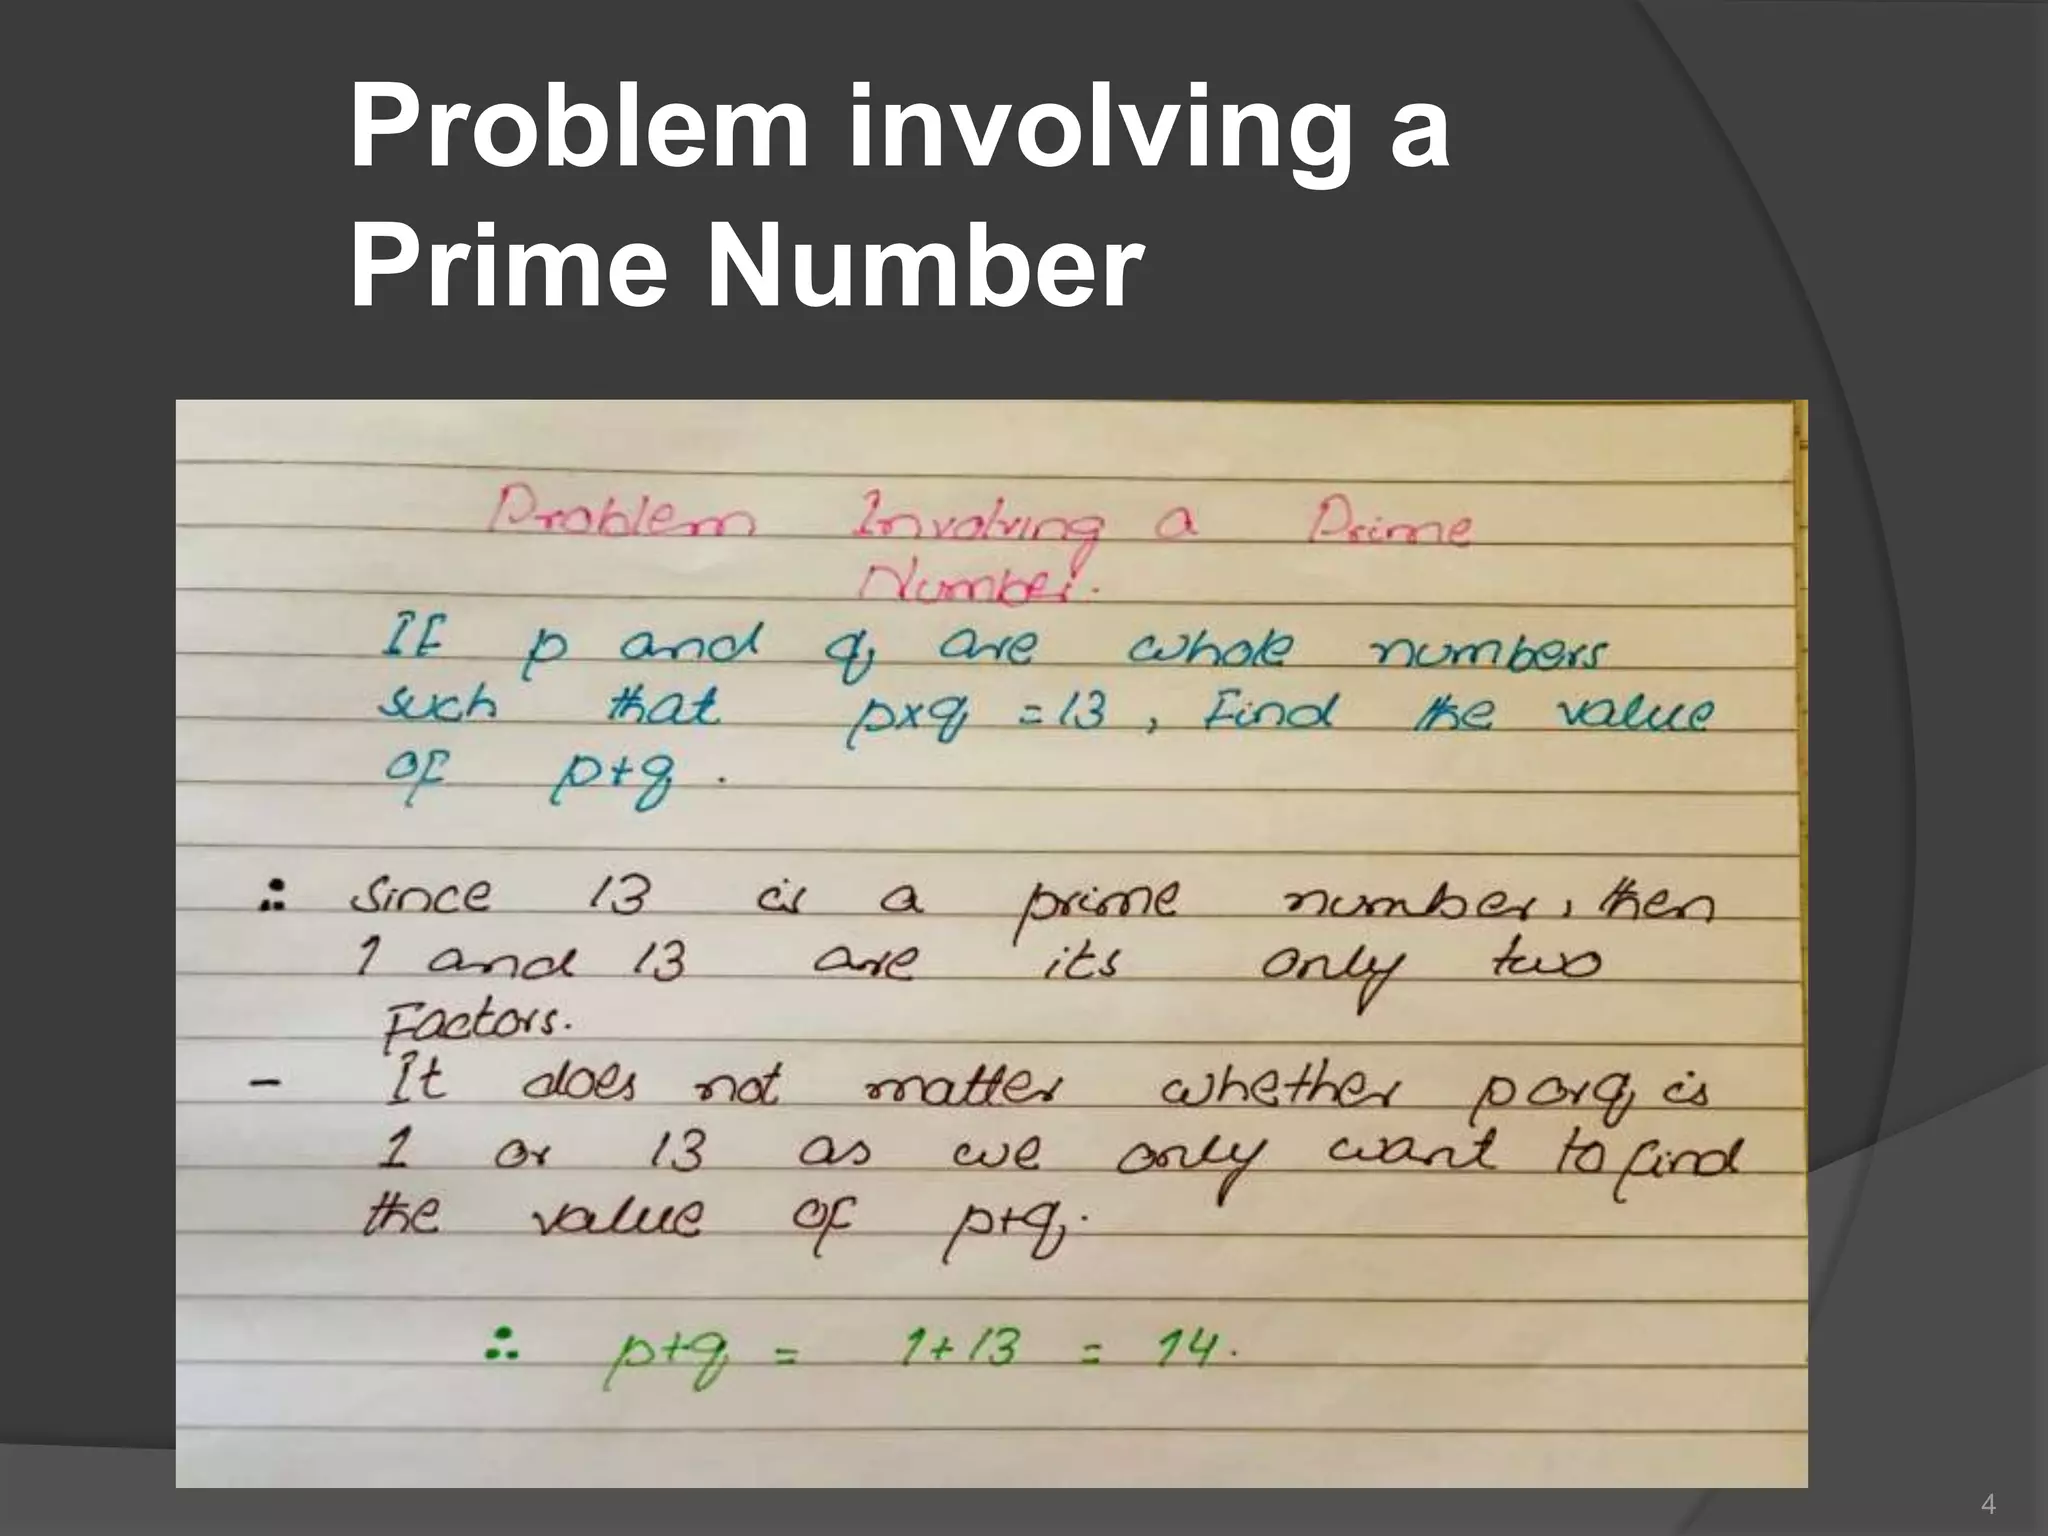 Problem involving a
Prime Number
Problem Involving a Prime
Number.
If p and q are whole numbers
such that p×q = 13, Find the value
of p+q.
∴ Since 13 is a prime number, then
1 and 13 are its only two
Factors.
- It does not matter whether p or q is
1 or 13 as we only want to find
the value of p+q.
∴ p+q = 1+13 = 14.
4